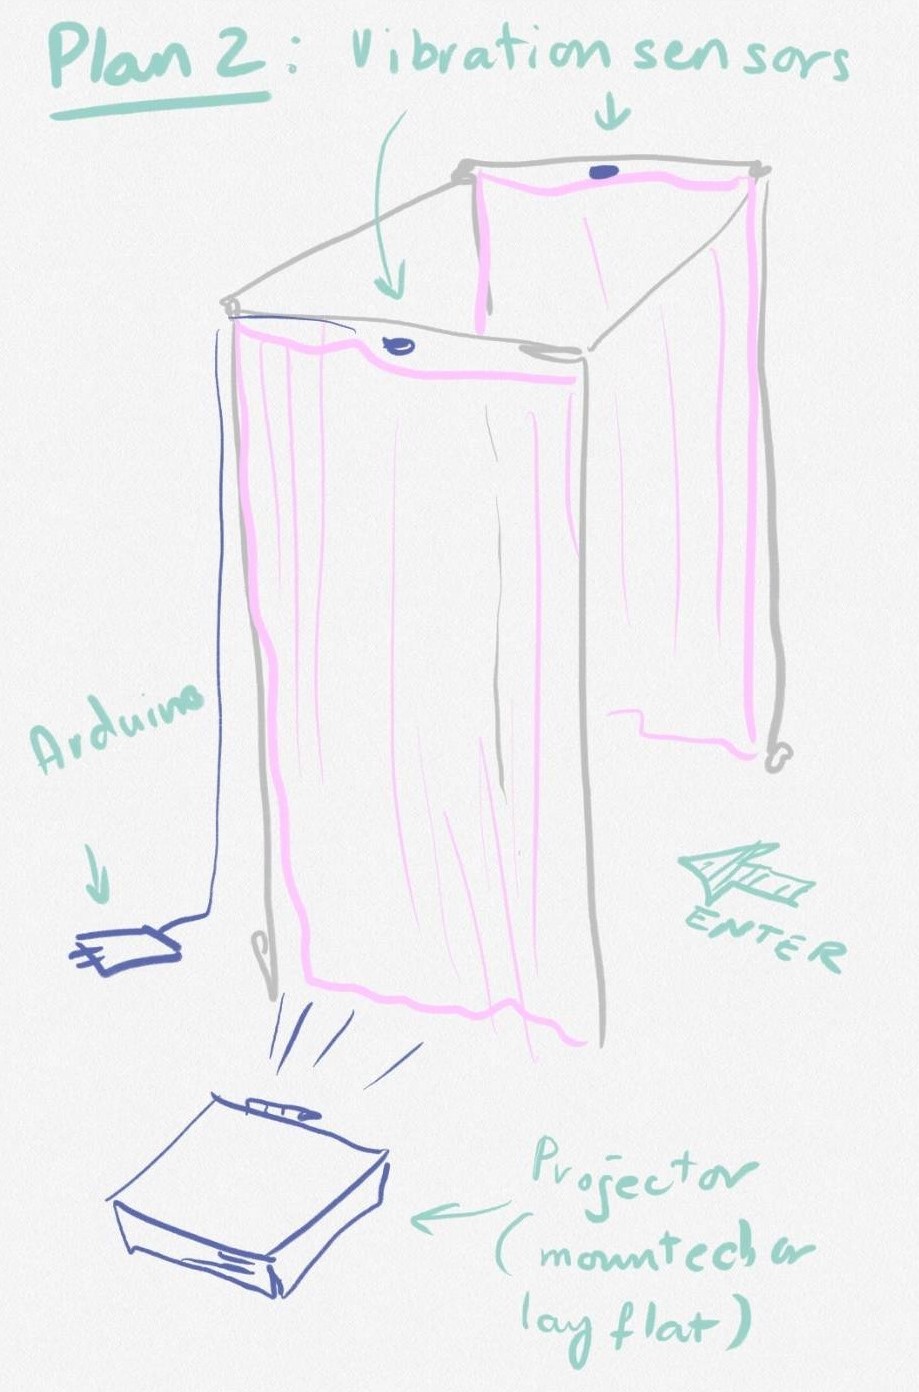 Plan 2: Vibration sensors
Arduino
ENTER
Projector
(mounted or
lay flat)